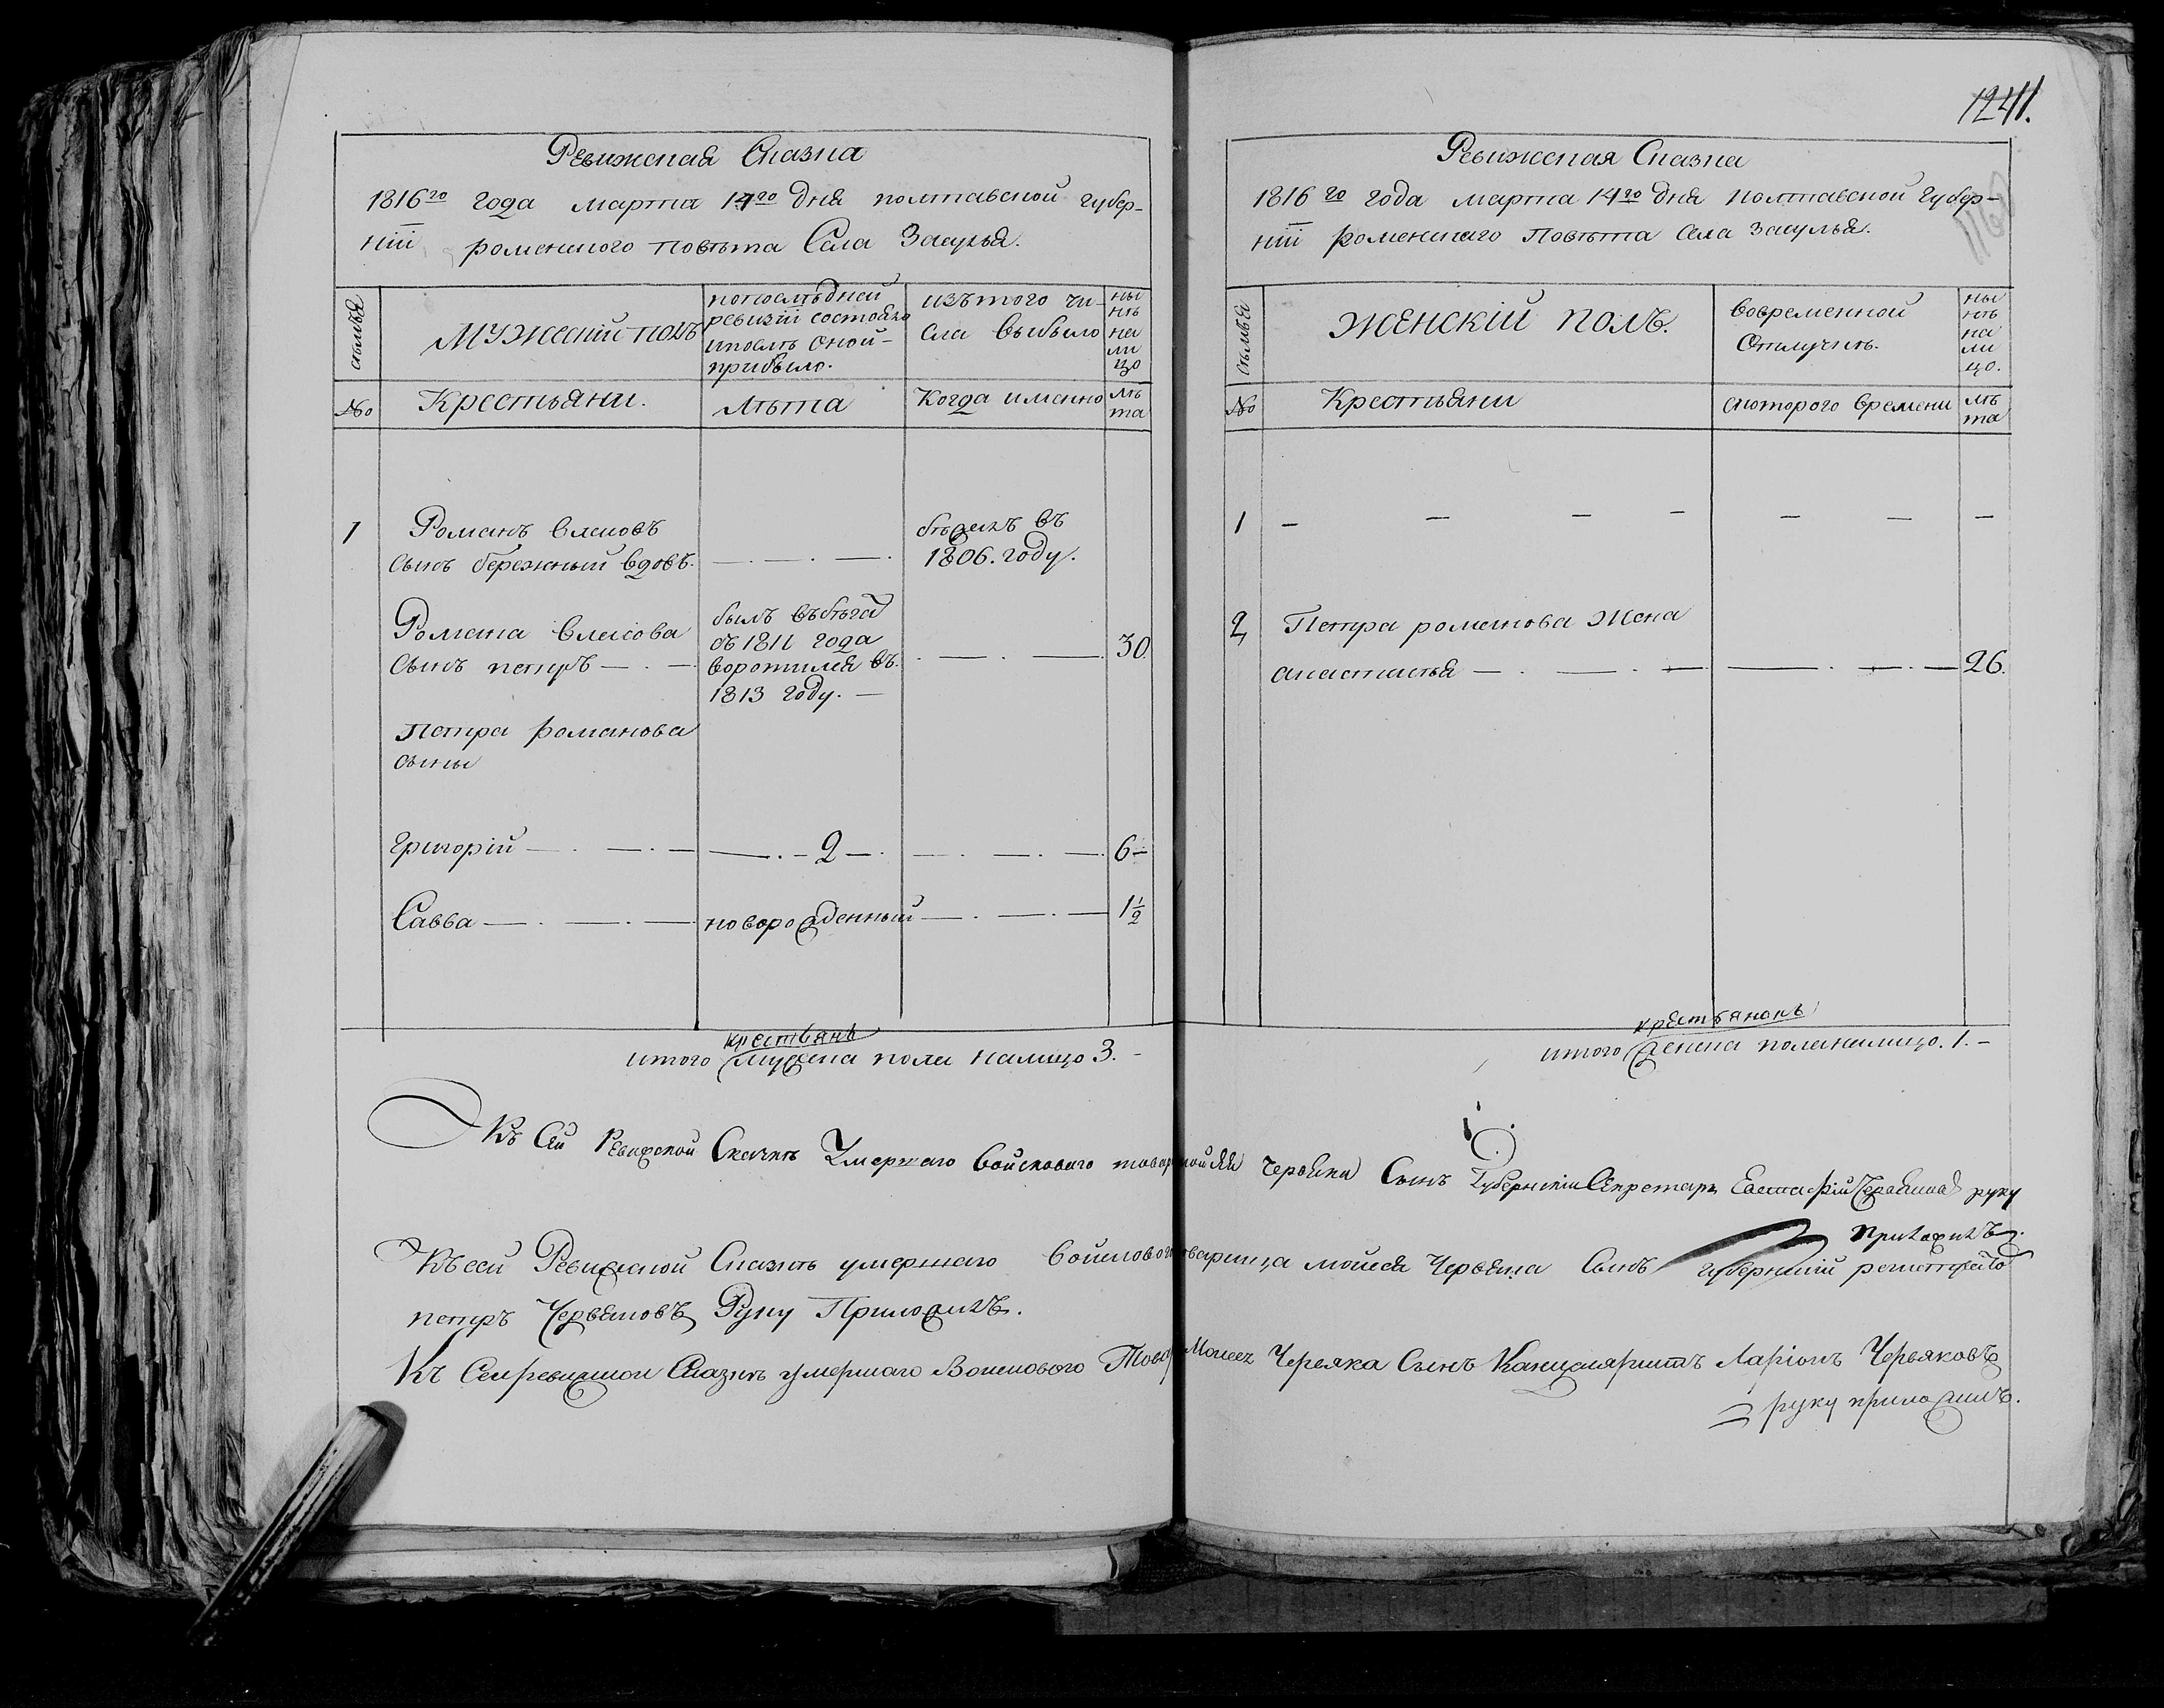 1241.
Ревижская Сказка
1816го года марта 14го дня полтавской губер-
нїї роменского повѣта Села Засулья.
семья
МУЖескїй полъ
попослѣдней ревизїї состояло ипослѣ оной прибыло.
изътого чи-
сла выбыло
ны
нѣ
на
ли
цо
№
Крестьяни.
лѣта
Когда именно
лѣ
та
1
Романъ власовъ
сынъ бережный вдовъ.
бѣжалъ въ
1806. году.
Романа власова
сынъ петръ
былъ въбѣгах
съ 1811 года
воротился въ
1813 году.
30
Петра романова
сыны
Григорїй
2
6
Савва
новорожденный
1 1/2
крестьянъ
итого мужеска пола налицо 3.
Ревижская Сказка
1816 го года марта 14го дня Полтавской губер-
нїї роменскаго Повѣта села Засулья.
семья
ЖЕНСКIЙ ПОЛЪ.
вовременной
отлучкѣ.
ны
нѣ
на
ли
цо.
№
Крестьяни
скоторого времени
лѣ
та
1
2
Петра романова Жена
анастасья
26.
крестьянокъ
итого женска пола налицо. 1.
Къ Сей Ревижской Сказкѣ Умершаго войсковаго Червяка Сынъ Губернскїй Секретарь Евстафїй Червяковъ руку
Приложилъ.
Къ сей Ревижской Сказкѣ умершаго войсковогo товарища моисея Червяка Сынъ губернский регистраторъ
петръ Червяковъ Руку Приложилъ.
Къ Сей ревижской Сказкѣ умершаго Войскового Това Моисея Червяка Сынъ Канцеляристъ Ларїонъ Червяковъ
руку приложилъ.